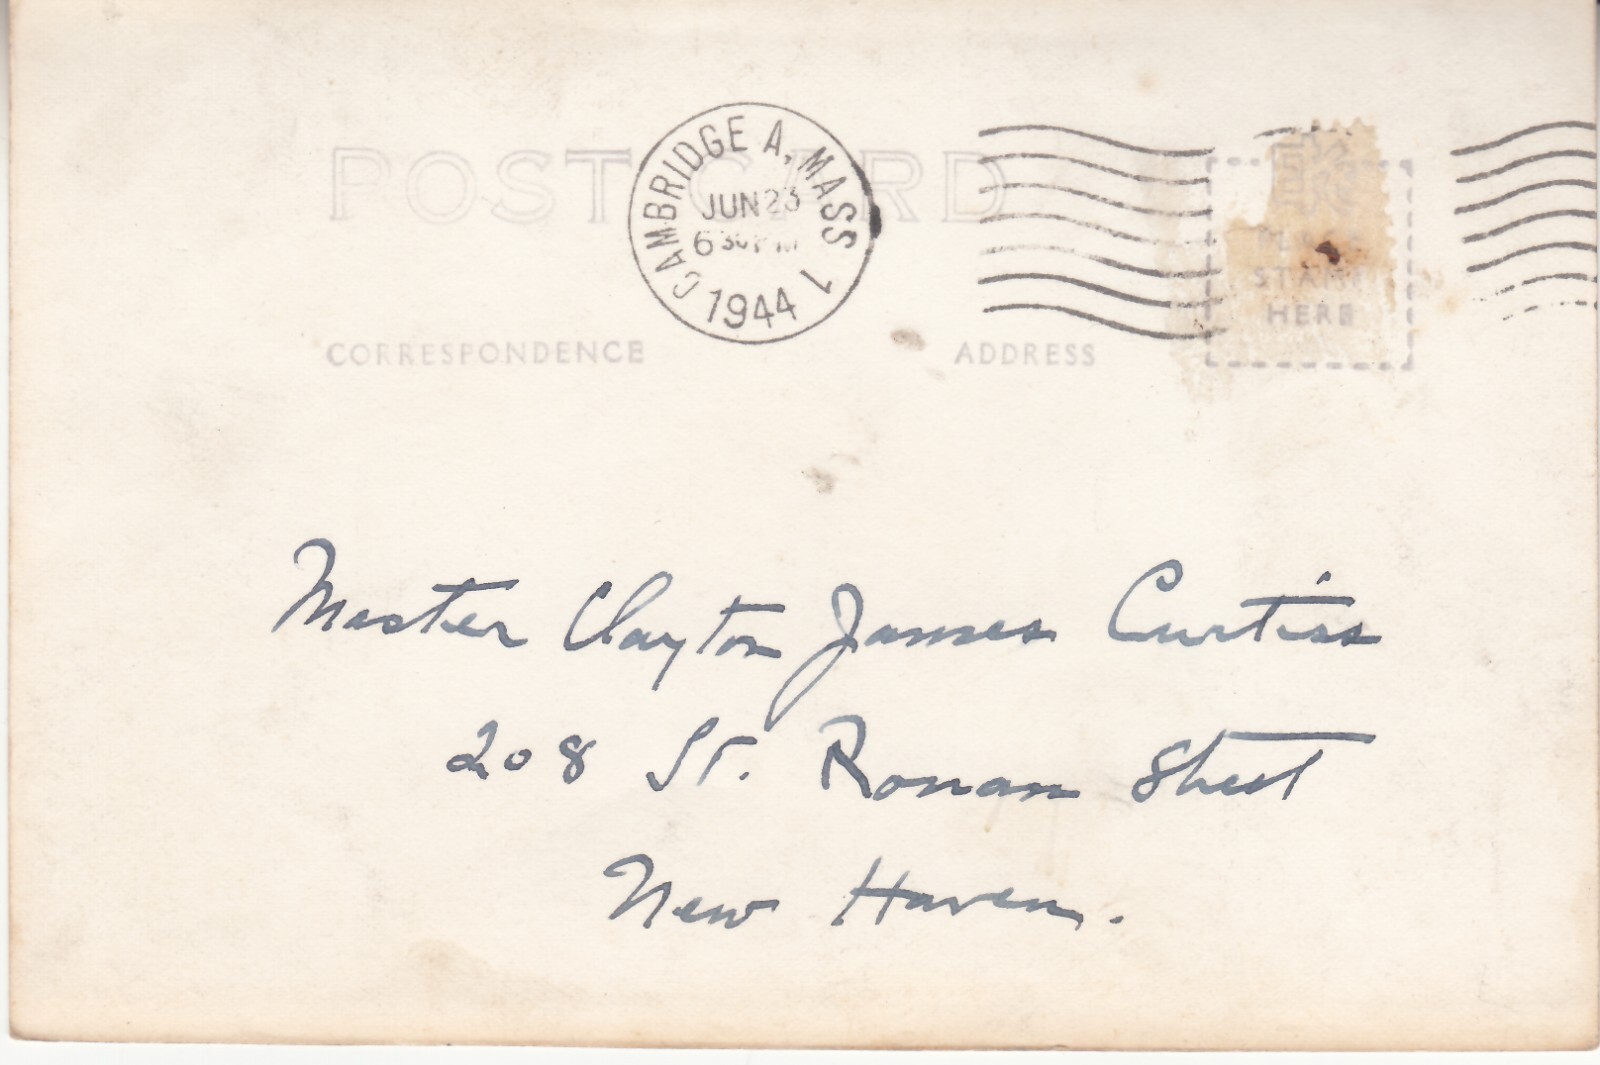 POST CARD
CAMBRIDGE A, MASS 1
JUN 23
6 30 PM
1944
EKC
PLACE
STAMP
HERE
CORRESPONDENCE
ADDRESS
Master Clayton James Curtiss
208 St. Ronan Street
New Haven.